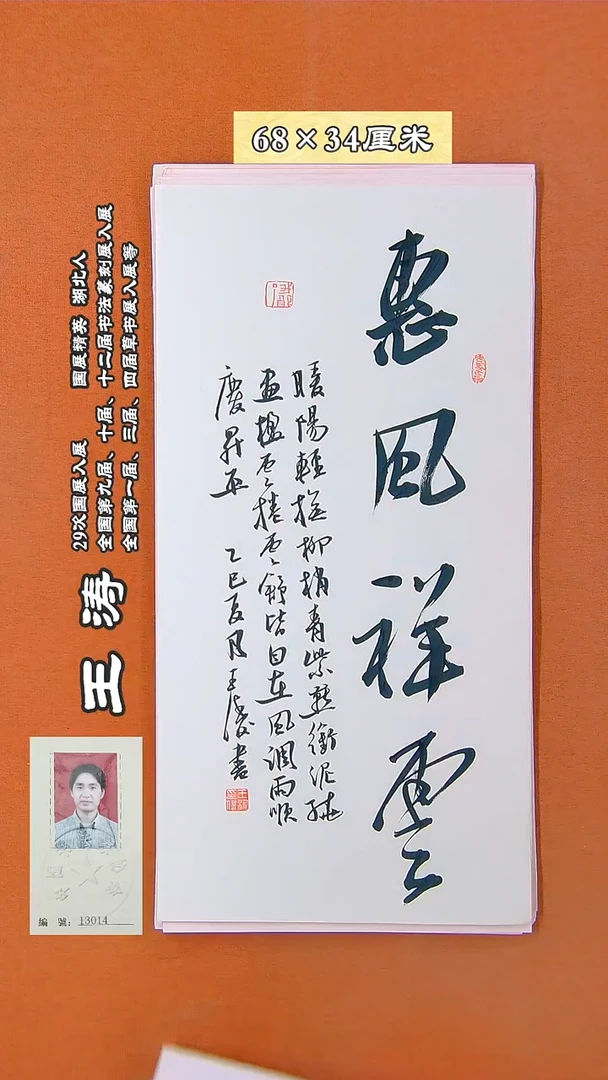 68×34厘米
惠風祥雲
暖陽輕撫柳梢青紫燕銜泥繞
畫楹雲捲雲舒皆自在風調雨順
慶昇平 乙巳夏月王濤書
国展精英 湖北人
29次国展入展
全国第九届、十届、十二届书法篆刻展入展
全国第一届、三届、四届草书展入展等
王涛
编 號: 13014